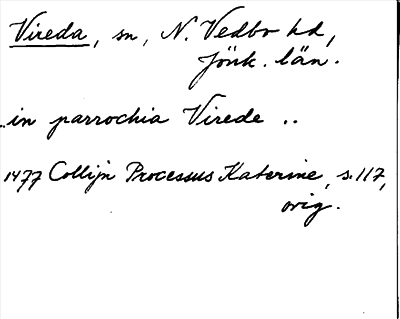 Vireda, sn, N. Vedbo hd,
Jönk. län.
..in parrochia Virede ..
1477 Collijn Processus Katerine, s. 117,
orig.